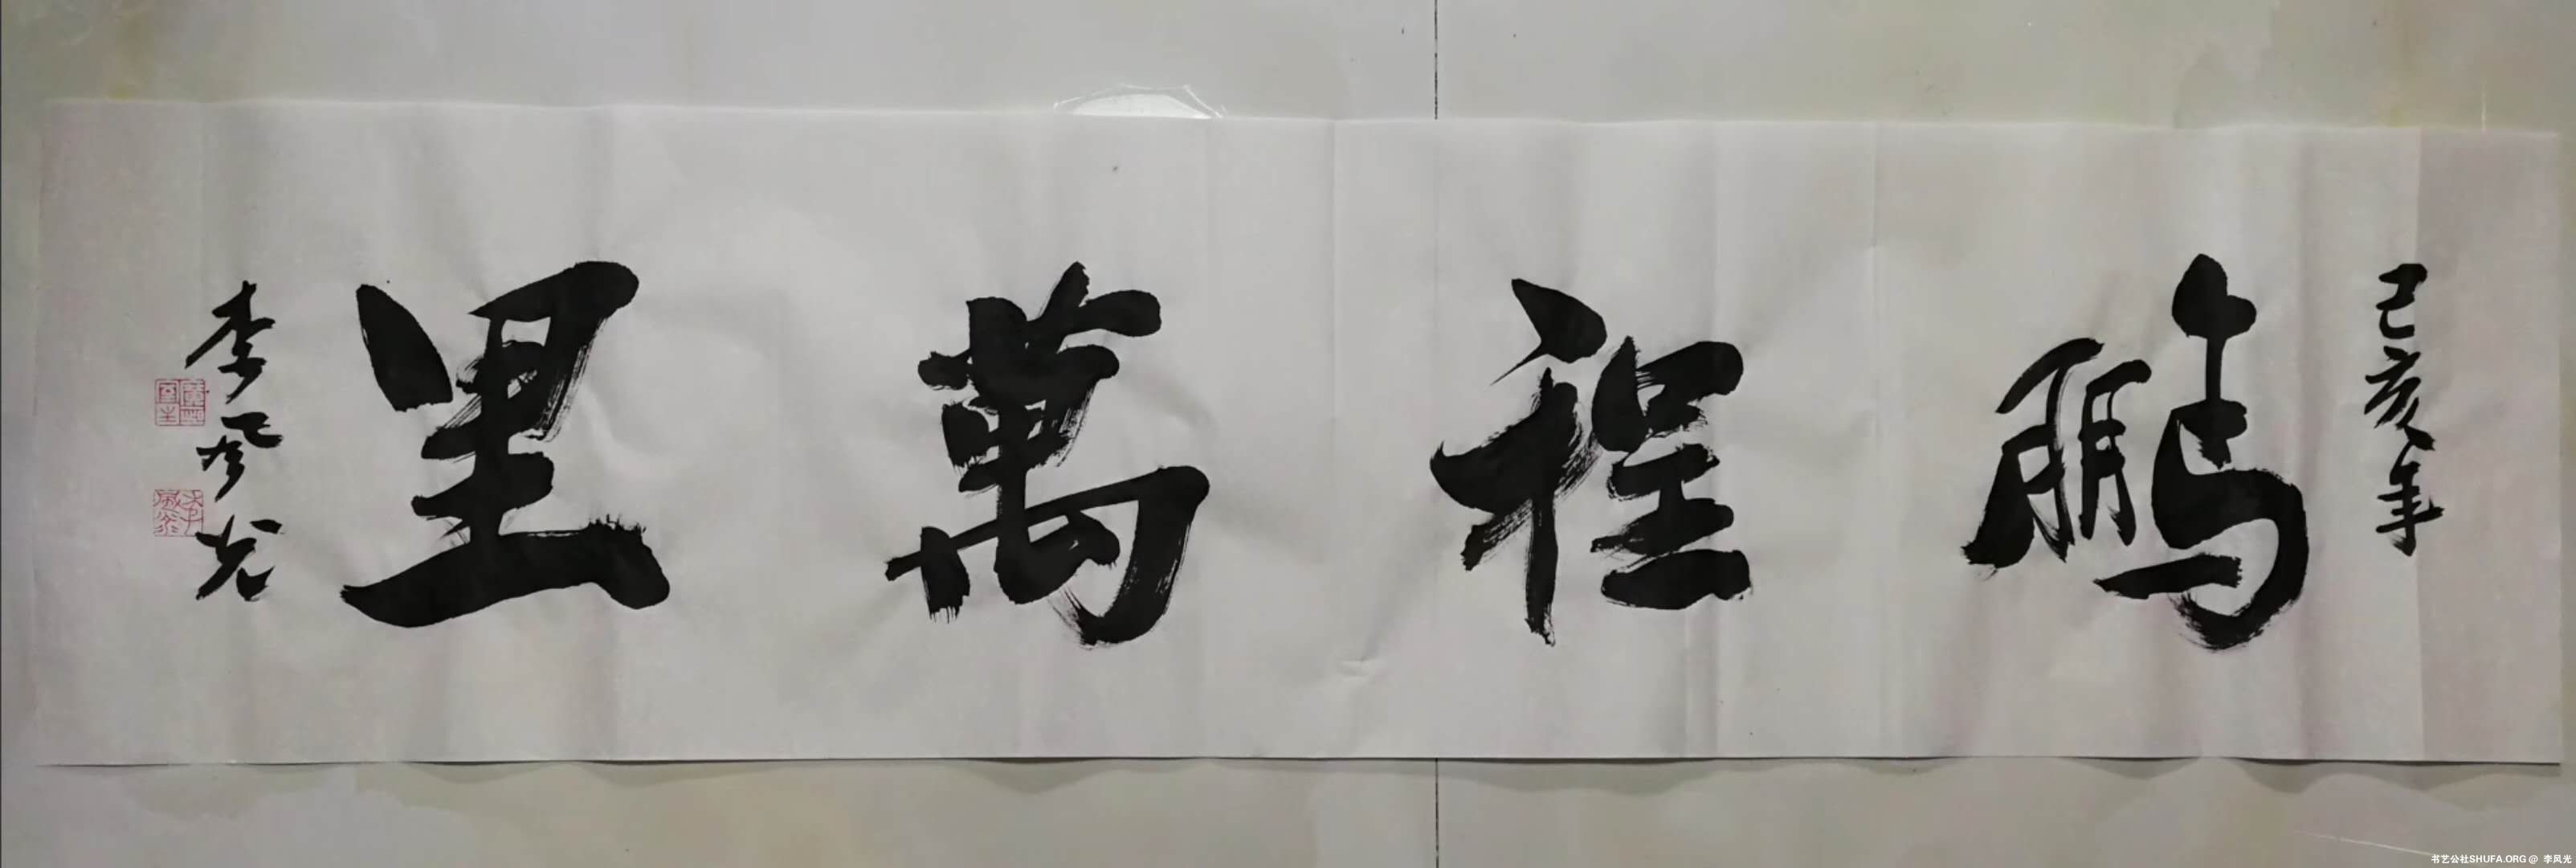 己亥年
鹏程萬里
李风光
书艺公社SHUFA.ORG @ 李风光